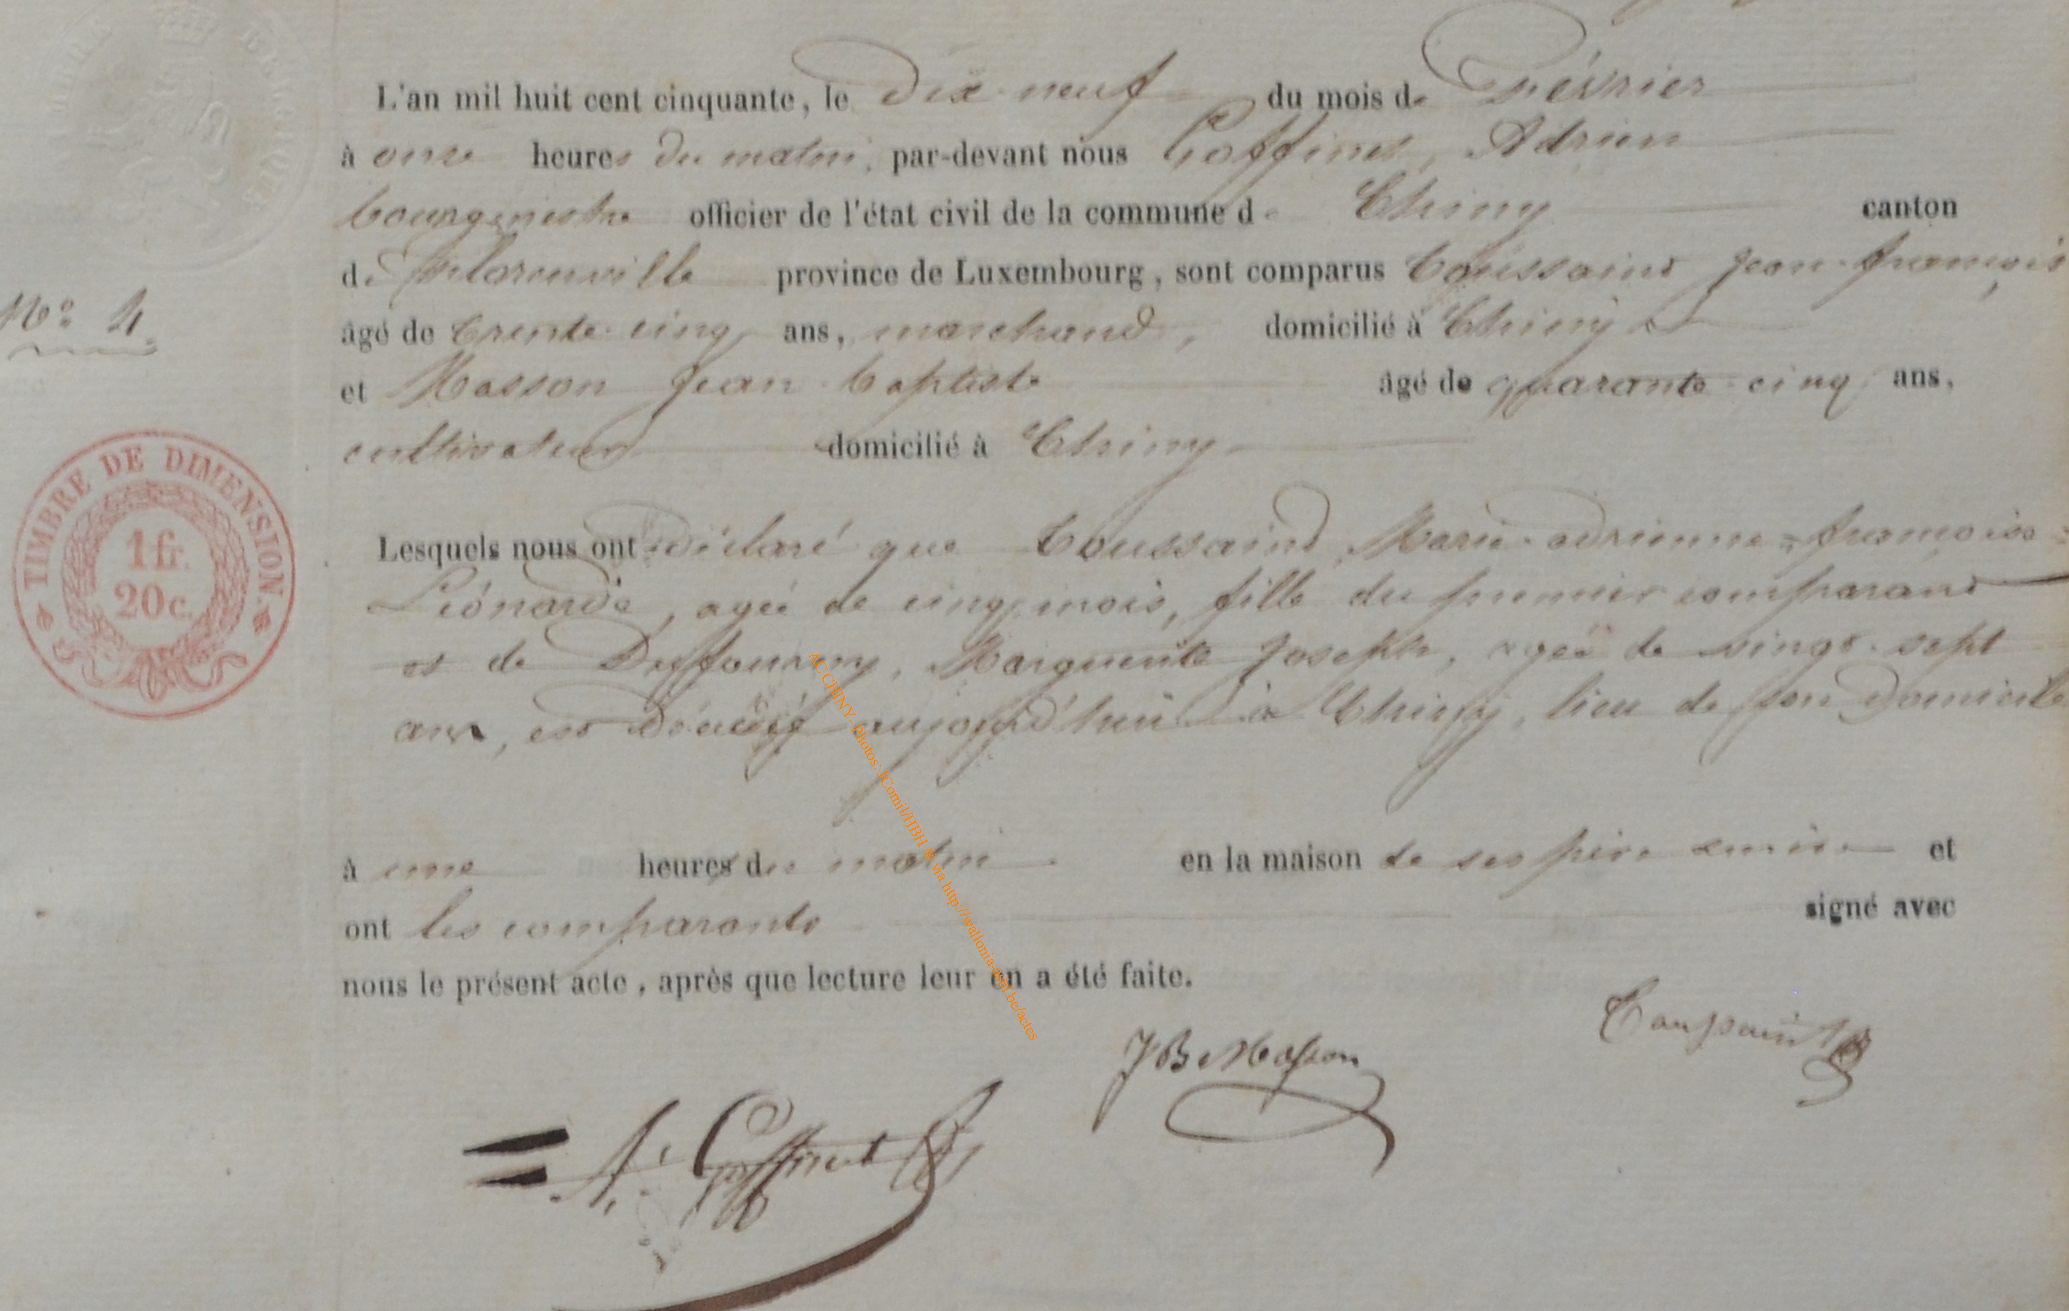 L'an mil huit cent cinquante, le dix-neuf du mois de Février
à onze heures du matin, par-devant nous Goffinet, Adrien
bourgmestre officier de l'état civil de la commune de Chiny canton
de Florenville province de Luxembourg, sont comparus Toussaint Jean-françois
N° 4
âgé de trente-cinq ans, marchand, domicilié à Chiny
et Masson Jean-baptiste âgé de quarante-cinq ans,
cultivateur domicilié à Chiny
TIMBRE DE DIMENSION
1 fr.
20 c.
Lesquels nous ont déclaré que Toussaint, Marie-adrienne=françoise=
Léonarde, agée de cinq mois, fille du premier comparant
et de Deffourny, Marguerite Joseph, agée de vingt-sept
ans, est décédée aujourd'hui à Chiny, lieu de son domicile
à une heures du matin en la maison de ses père et
ont les comparants signé avec
nous le présent acte, après que lecture leur en a été faite.
Toussaint
JB Masson
A. Goffinet